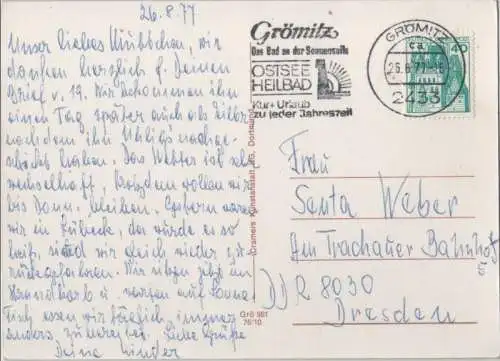 26.8.77
Unser liebes Muttchen, wir
danken herzlich f. Deinen
Brief v. 19. Wir bekommen ihn
einen Tag später auch als
nachdem ihn
haben. Das Wetter ist sehr
wechselhaft, trotzdem wollen wir
bis Donn. bleiben. Gestern waren
wir in Lübeck, da wurde es so
heiß, sind wir gleich wieder zu-
rückgefahren. Wir liegen jetzt im
Strandkorb u. warten auf Sonne.
Fisch essen wir täglich, immer
anders zubereitet. Liebe Grüße
Deine Kinder
Grömitz
Das Bad an der Sonnenseite
OSTSEE
HEILBAD
Kur + Urlaub
zu jeder Jahreszeit
GRÖMITZ
ca
26.8.77
2433
40
Cramers Kunstanstalt KG, Dortmund
Grö 981
76/10
Frau
Senta Weber
Am Trachauer Bahnhof
DDR 8030
Dresden